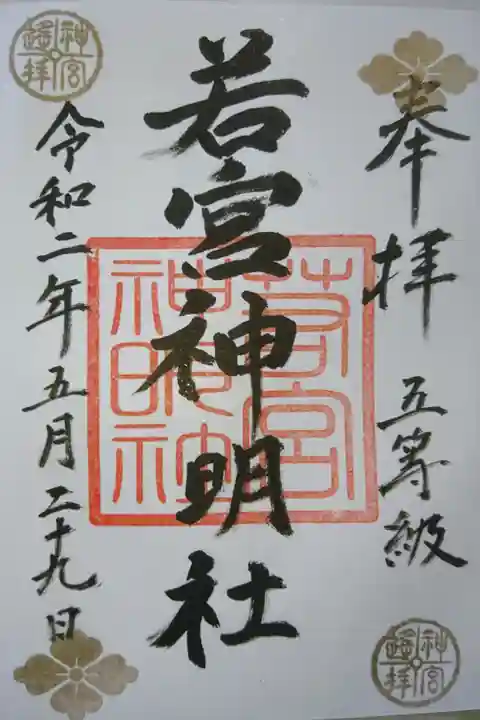 奉拝 五等級
若宮神明社
令和二年五月二十九日
若宮
神明社
神宮
遙拝
神宮
遙拝